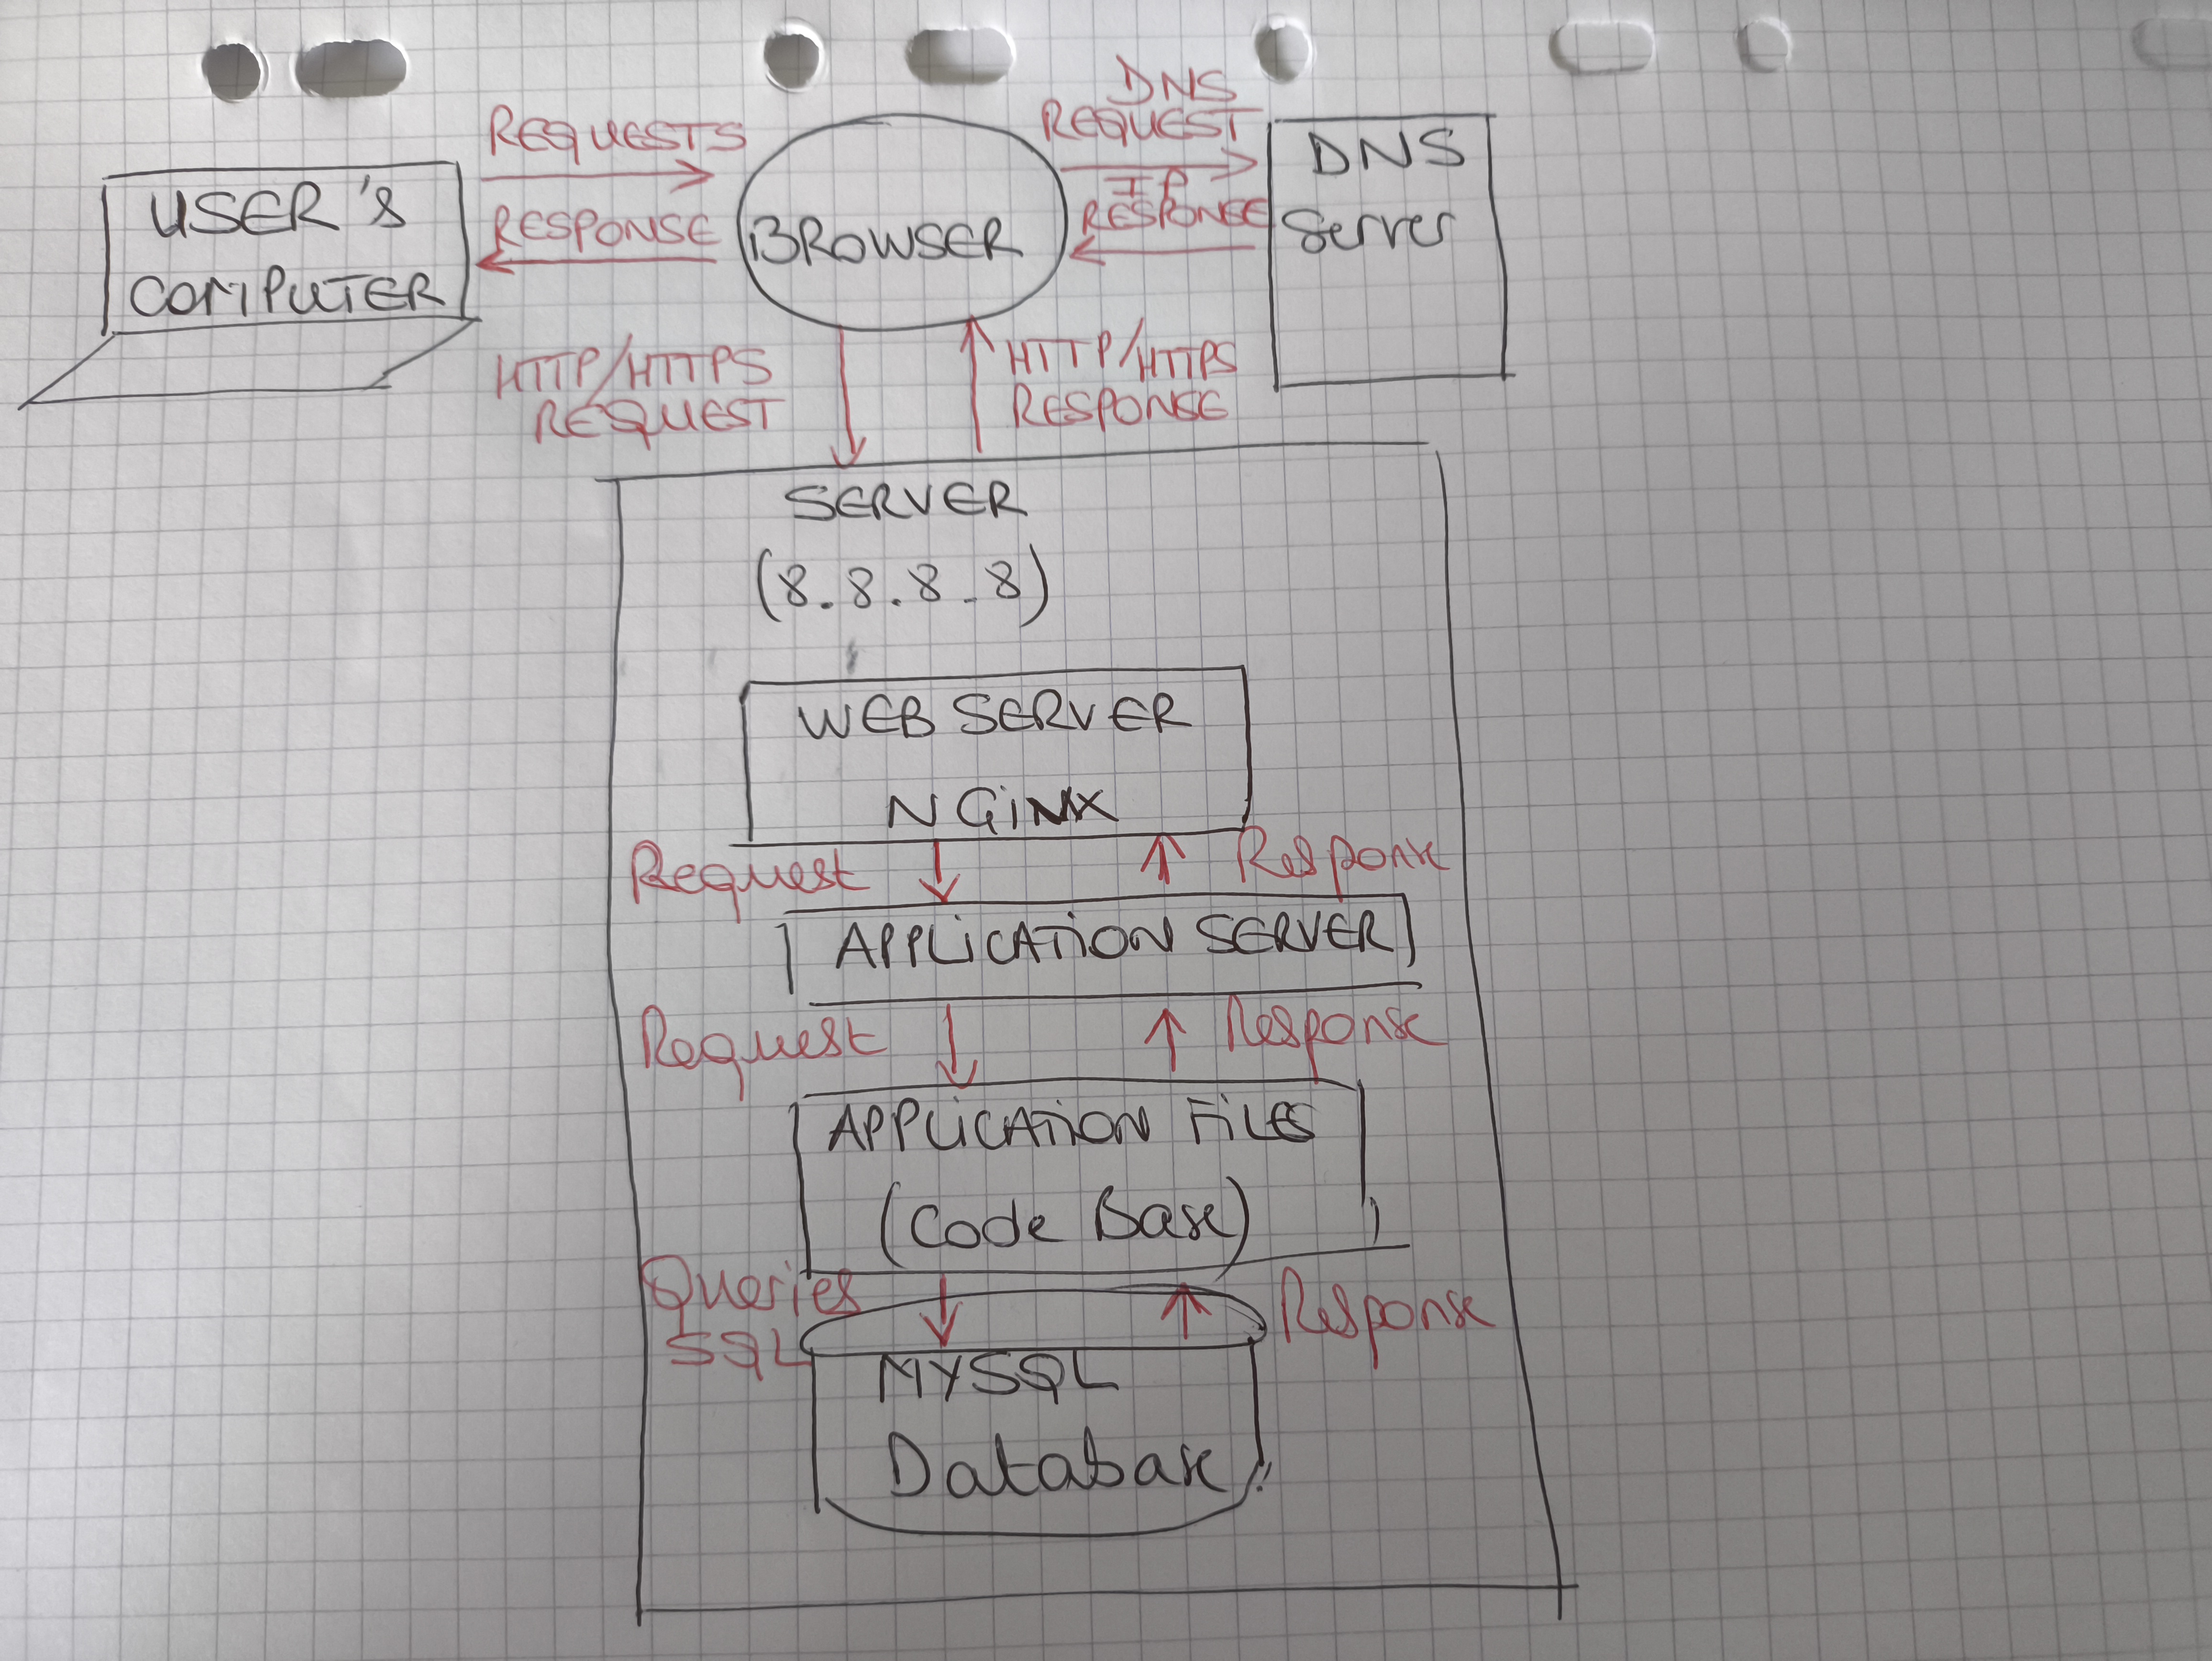 DNS
REQUESTS
REQUEST
USER's
COMPUTER
RESPONSE
BROWSER
IP
RESPONSE
DNS
Server
HTTP/HTTPS
REQUEST
HTTP/HTTPS
RESPONSE
SERVER
(8.8.8.8)
WEB SERVER
NGiNX
Request
Response
APPLiCATiON SERVER
Request
Response
APPLiCATiON FiLES
(Code Base)
Queries
SQL
Response
MYSQL
Database